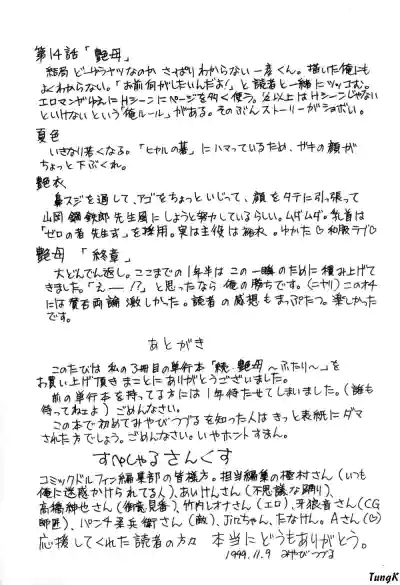 第14話「艶母」
結局どーゆうヤツなのか さっぱりわからない一彦くん。描いた俺にも
よくわからない。「お前何がしたいんだよ!」と読者と一緒にツッコむ。
エロマンガゆえにHシーンにページを多く使う。2/3以上はHシーンじゃない
といけないという「俺ルール」がある。そのぶんストーリーがショボい。
夏色
いきなり若くなる。「ヒヤルの墓」にハマっているため、ガキの顔が
ちょっと下ぶくれ。
艶衣
鼻スジを通して、アゴをちょっといじって、顔をタテに引っ張って
山岡鋼鉄郎先生風にしようと努力しているらしい。ムダムダ。乳首は
「ゼロの者先生式」を採用。実は主役は 衣 ゆかた♡和服ラブ♡
艶母「終章」
大どんでん返し。ここまでの1年半は この一瞬のために積み上げて
きました。「えー!?」と思ったなら俺の勝ちです。(ニヤリ)このオチ
には賛否両論激しかった。読者の感想もまっぷたつ。楽しかった
です。
あとがき
このたびは 私の3冊目の単行本「続・艶母 〜ふたり〜」を
お買い上げ頂き まことにありがとうございました。
前の単行本を持ってる方には1年待たせてしまいました。(誰も
待ってねェよ)ごめんなさい。
この本で初めてみやびつづるを知った人はきっと表紙にダマ
された方でしょう。ごめんなさい。いやホントすまん。
すぺしゃるさんくす
コミックドルフィン編集部の皆様方。担当編集の種村さん(いつも
俺に迷惑かけられてる人)、あいけんさん(不思議な踊り)、
高橋 也さん( 見番)、竹内レオナさん(エロ)、牙狼音さん(CG
師匠)、パンチ 兵衛さん(敵)、Jinちゃん、たなけん。Aさん(♡)
応援してくれた読者の方々 本当にどうもありがとう。
1999.11.9 みやびつづる
TungK